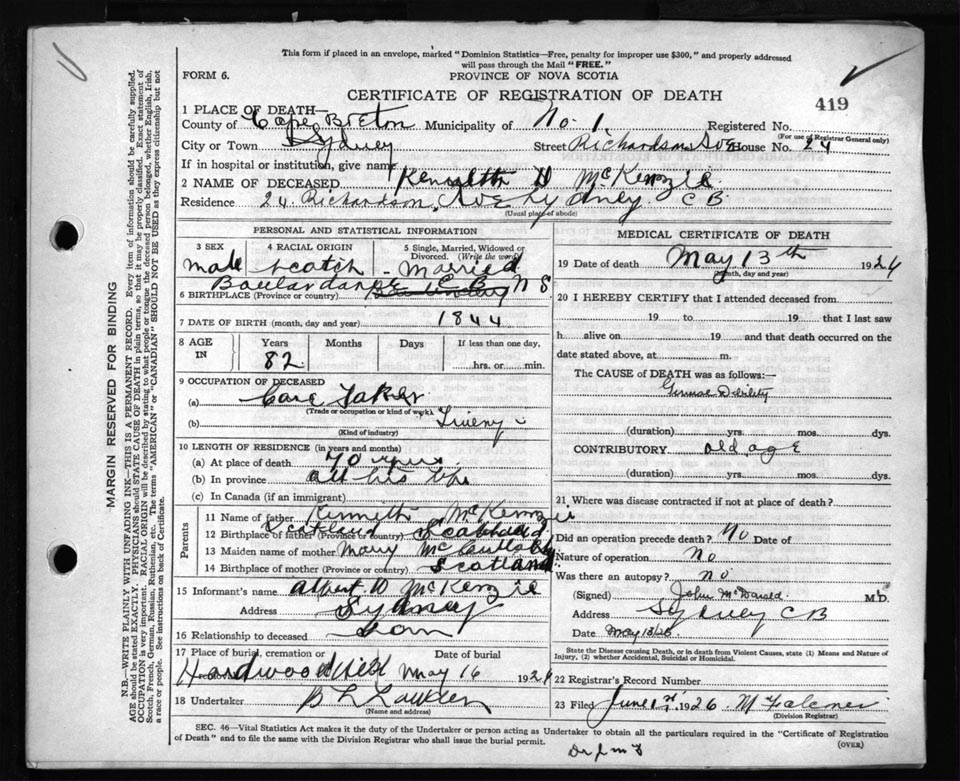 This form if placed in an envelope, marked "Dominion Statistics—Free, penalty for improper use $300," and properly addressed
will pass through the Mail "FREE."
FORM 6.
PROVINCE OF NOVA SCOTIA
CERTIFICATE OF REGISTRATION OF DEATH
419
1 PLACE OF DEATH—
County of Cape Breton Municipality of No. 1 Registered No.
(For use of Registrar General only)
City or Town Sydney Street Richardson Ave House No. 24
If in hospital or institution, give name
2 NAME OF DECEASED Kenneth D McKenzie
Residence 24 Richardson Ave Sydney C B
(Usual place of abode)
PERSONAL AND STATISTICAL INFORMATION
3 SEX 4 RACIAL ORIGIN 5 Single, Married, Widowed or
Divorced. (Write the word)
Male Scotch Married
Boulardarie C B N S
6 BIRTHPLACE (Province or country)
7 DATE OF BIRTH (month, day and year) 1844
8 AGE IN Years Months Days If less than one day,
82 hrs. or min.
9 OCCUPATION OF DECEASED
(a) Care Taker
(Trade or occupation or kind of work)
(b)
(Kind of industry)
10 LENGTH OF RESIDENCE (in years and months)
(a) At place of death 40 years
(b) In province all his life
(c) In Canada (if an immigrant)
Parents
11 Name of father Kenneth McKenzie
12 Birthplace of father (Province or country) Scotland
13 Maiden name of mother Mary
14 Birthplace of mother (Province or country) Scotland
15 Informant's name Albert D McKenzie
Address Sydney
16 Relationship to deceased Son
17 Place of burial, cremation or Date of burial
Hardwood Hill May 16 1926
18 Undertaker
(Name and address)
MEDICAL CERTIFICATE OF DEATH
19 Date of death May 13th 1926
(Month, day and year)
20 I HEREBY CERTIFY that I attended deceased from
19 to 19 that I last saw
h alive on 19 and that death occurred on the
date stated above, at m.
The CAUSE of DEATH was as follows:—
Debility
(duration) yrs. mos. dys.
CONTRIBUTORY old age
(duration) yrs. mos. dys.
21 Where was disease contracted if not at place of death?
Did an operation precede death? No Date of
Nature of operation no
Was there an autopsy? no
(Signed) John McDonald M.D.
Address Sydney C B
Date May 13/26
State the Disease causing Death, or in death from Violent Causes, state (1) Means and Nature of
Injury, (2) whether Accidental, Suicidal or Homicidal.
22 Registrar's Record Number
23 Filed June 1926
(Division Registrar)
SEC. 46—Vital Statistics Act makes it the duty of the Undertaker or person acting as Undertaker to obtain all the particulars required in the "Certificate of Registration
of Death" and to file the same with the Division Registrar who shall issue the burial permit.
(OVER)
MARGIN RESERVED FOR BINDING
N.B.—WRITE PLAINLY WITH UNFADING INK—THIS IS A PERMANENT RECORD. Every item of information should be carefully supplied.
AGE should be stated EXACTLY. PHYSICIANS should STATE CAUSE OF DEATH in plain terms, so that it may be properly classified. Exact statement of
OCCUPATION is very important. RACIAL ORIGIN will be described by stating to what people or tongue the deceased person belonged, whether English, Irish,
Scotch, French, German, Russian, Ruthenian, etc. The terms "AMERICAN" or "CANADIAN" SHOULD NOT BE USED as they express citizenship but not
a race or people. See instructions on back of Certificate.